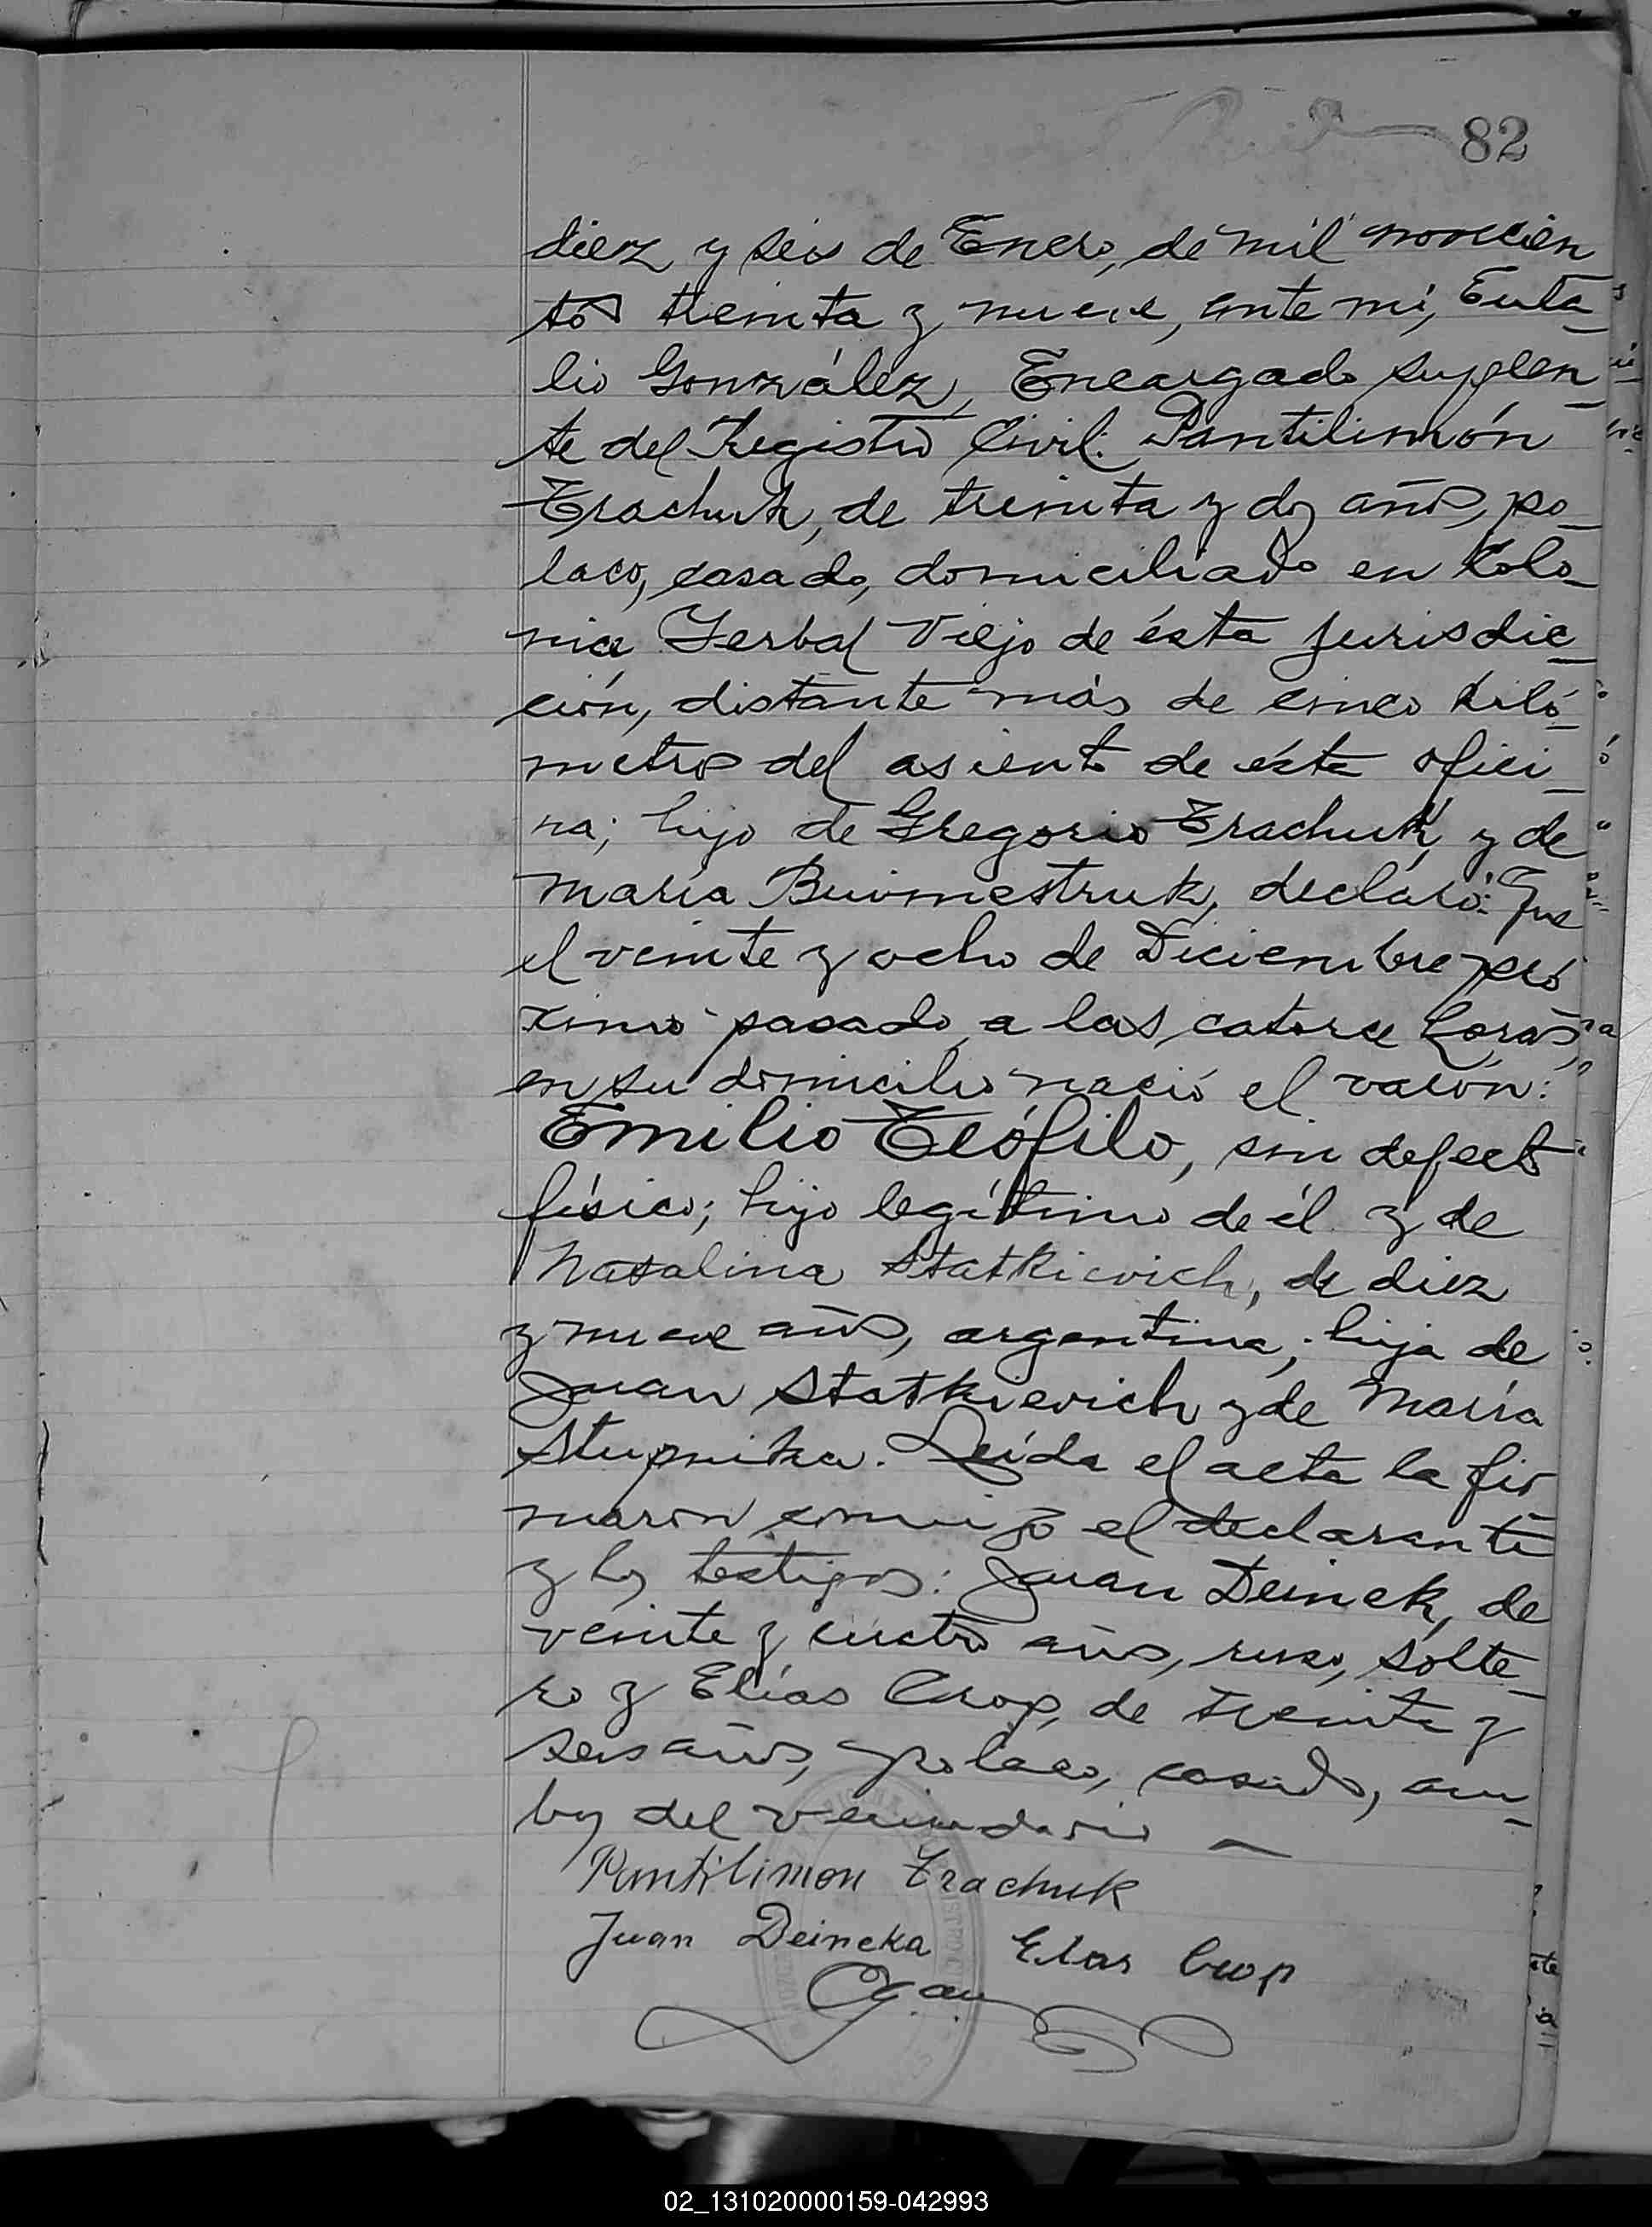 82
diez y seis de Enero, de mil novecien
tos treinta y nueve, ante mí, Euta_
lio González, Encargado suplen_
te del Registro Civil: Pantilimón
Trachuk, de treinta y dos años, po_
laco, casado, domiciliado en Colo_
nia Yerbal Viejo de ésta jurisdic_
ción, distante más de cinco kiló_
metros del asiento de ésta ofici_
na; hijo de Gregorio Trachuk, y de
María Buvmestruk, declaró: Que
el veinte y ocho de Diciembre pró
ximo pasado, a las catorce horas,
en su domicilio nació el varón:
Emilio Teófilo, sin defecto
físico; hijo legítimo de él y de
Natalina Statkievich, de diez
y nueve años, argentina; hija de
Juan Statkievich y de María
Stupnika. Leída el acta la fir_
maron conmigo el declarante
y los testigos: Juan Deinek, de
veinte y cuatro años, ruso, solte_
ro y Elías Crop, de treinta y
seis años, polaco, casado, am_
bos del vecindario —
Pantilimon Trachuk
Juan Deineka Elas Crop
02_131020000159-042993